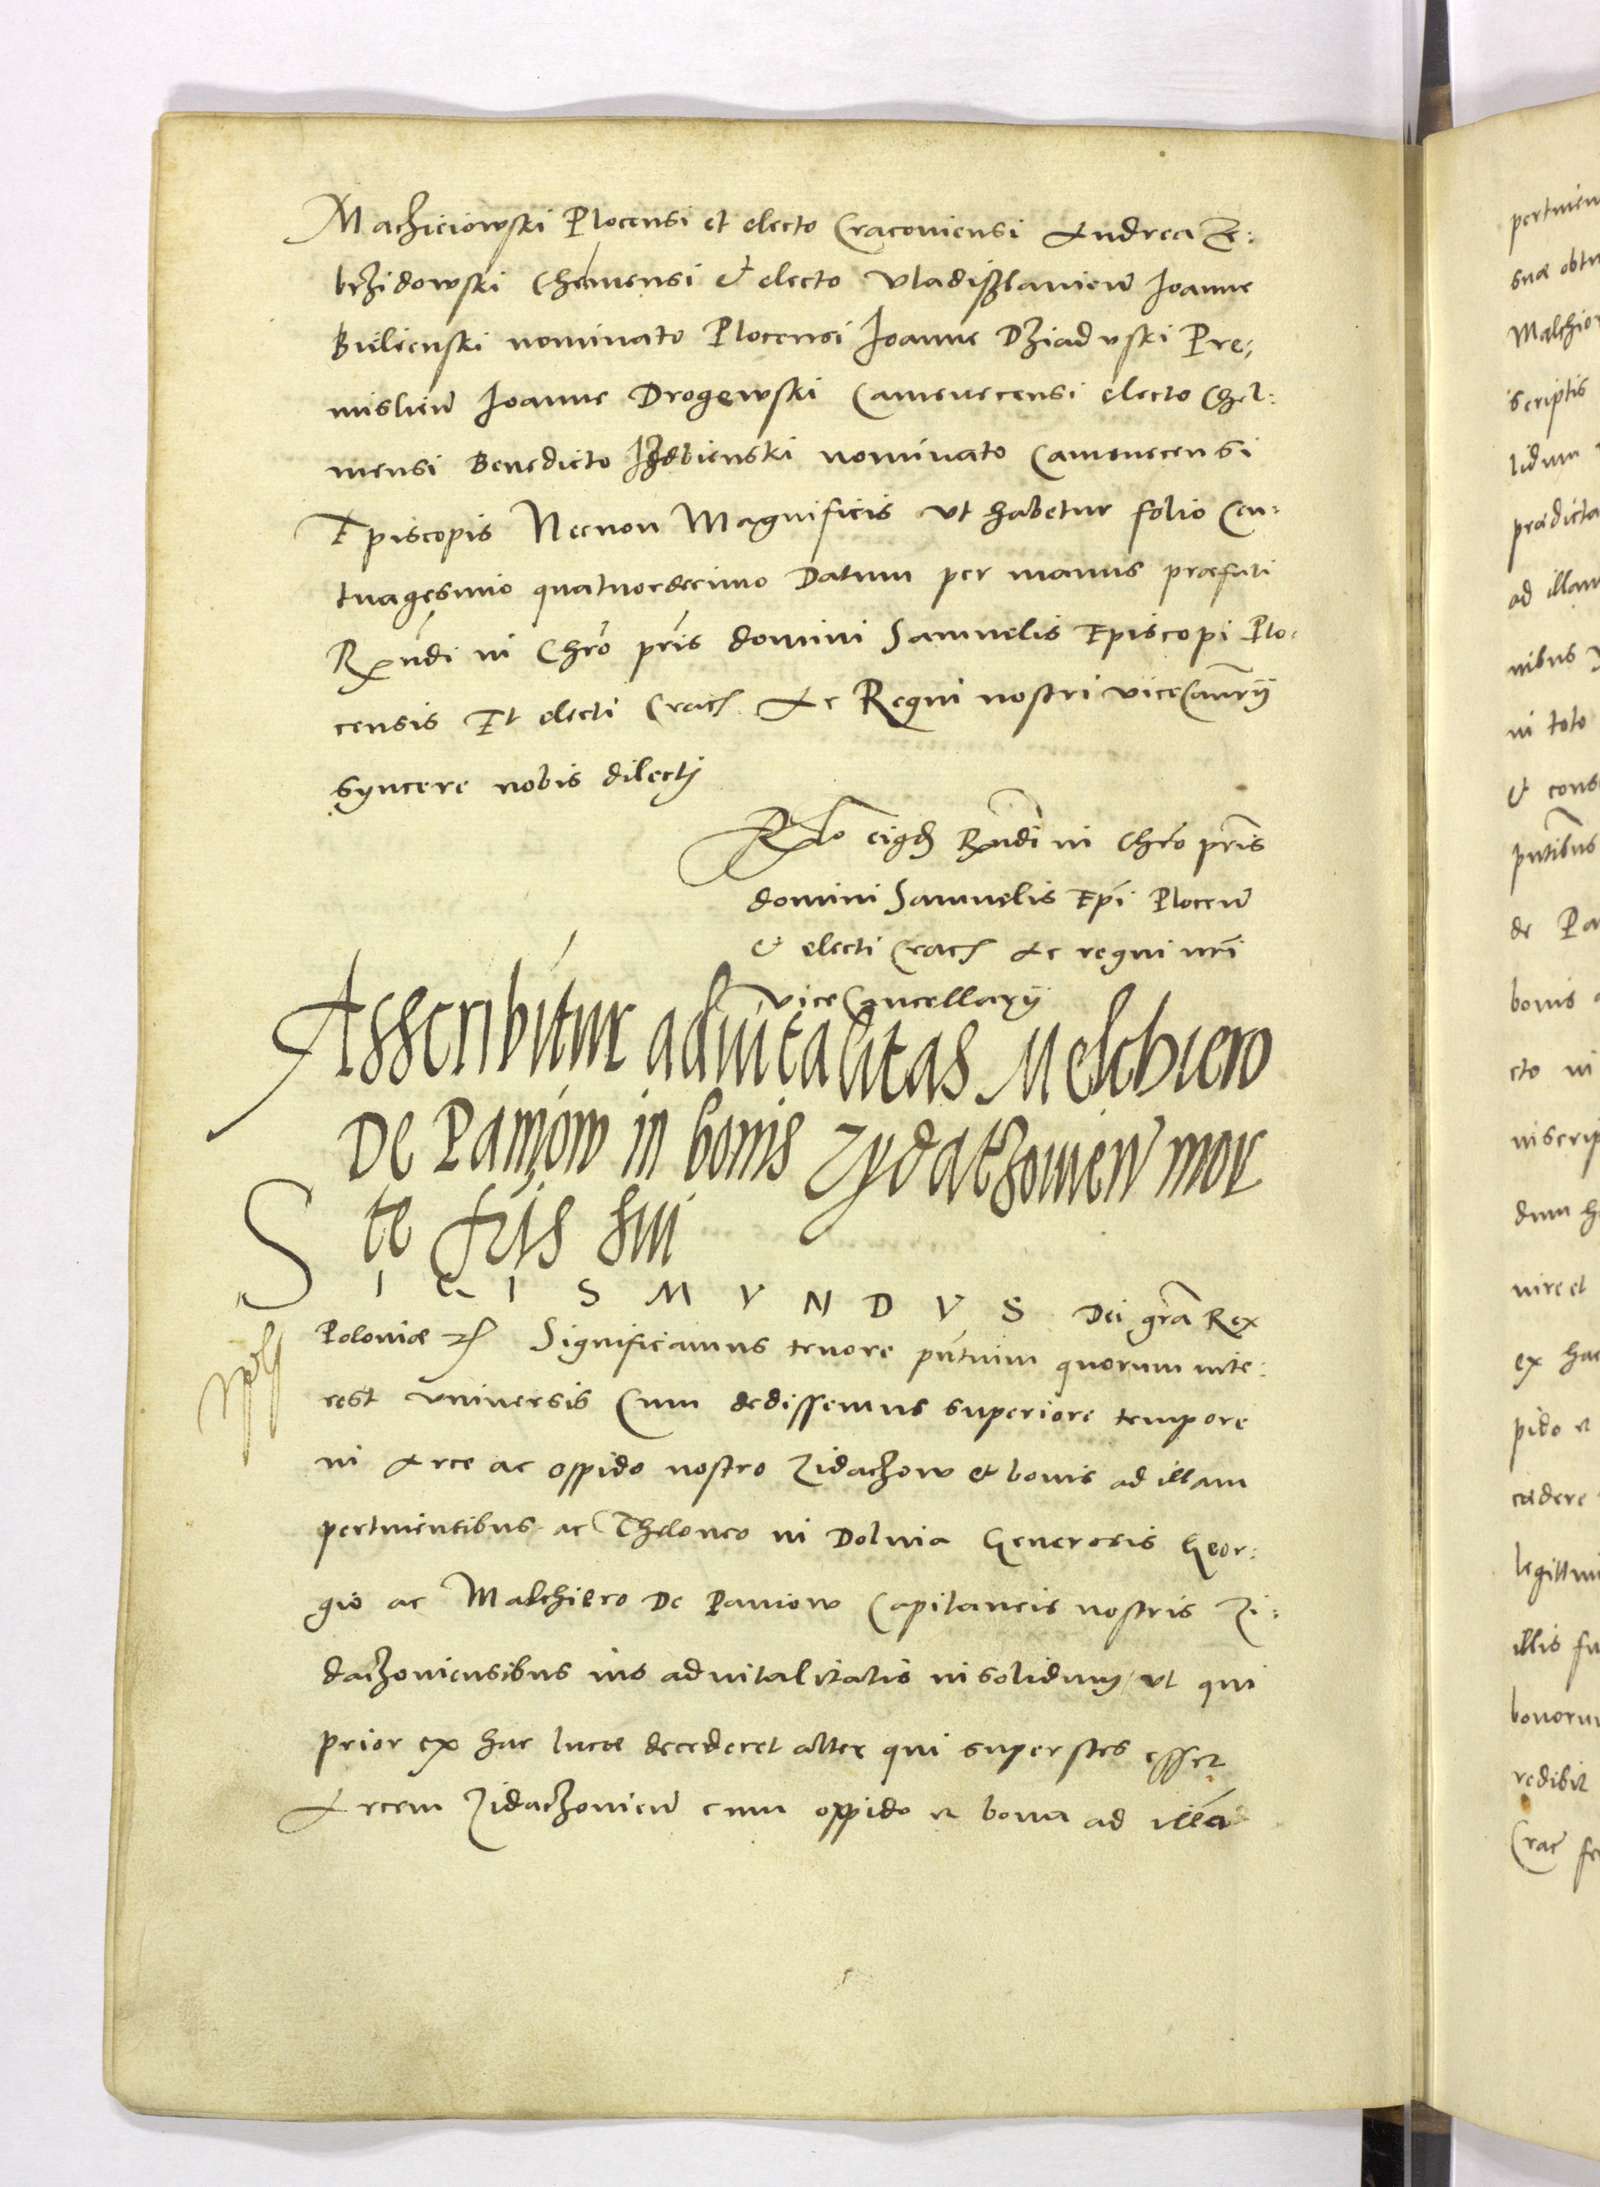 Machieiowski Plocensi et electo Cracoviensi Andrea Ze:
brzidowski Chelmensi & electo Vladislavien̄ Joanne
Bielienski nominato Plocensi Joanne Dziaduski Pre:
mislien̄ Joanne Drogewski Camenecensi electo Chel:
mensi Benedicto Izdbienski nominato Camenecensi
Episcopis Necnon Magnificis ut habetur folio Cen:
tuagesimo quatuordecimo Datum per manus præfati
Rñdi in Chrō pr̄is domini Samuelis Episcopi Plo:
censis Et electi Crac̄ Ac Regni nostri viceCancrij
syncere nobis dilecti
Rlō eiqd Rñdi in Chrō pr̄is
domini Samuelis Ep̄i Plocen̄
& electi Crac̄ Ac regni nr̄i
viceCancellarij
Asscribitur advitalitas Melchiero
De Paniow in bonis Zydathowien̄ mor
te fr̄is sui
SIGISMVNDVS Dei gr̄a Rex
Poloniæ &c̄ Significamus tenore pñtium quorum inte:
rest universis Cum dedissemus superiore tempore
in Arce ac oppido nostro Zidachow et bonis ad illam
pertinentibus ac Theloneo in Dolina Generosis Geor:
gio ac Malchiero De Paniow Capitaneis nostris Zi:
dachoviensibus ius advitalitatis in solidum ut qui
prior ex hac luce decederet alter qui superstes esset
Arcem Zidachovien̄ cum oppido et bona ad illā
pertinen
suæ obtu
Malchior
scriptis
lidum
prædicta
ad illam
nibus
in toto
& cons
pñtibus
de Pa
bonis
cto in
inscrip
dum h
nire et
ex hac
pido et
cædere
legittim
illis fu
bonorum
redibit
Crac̄ fe